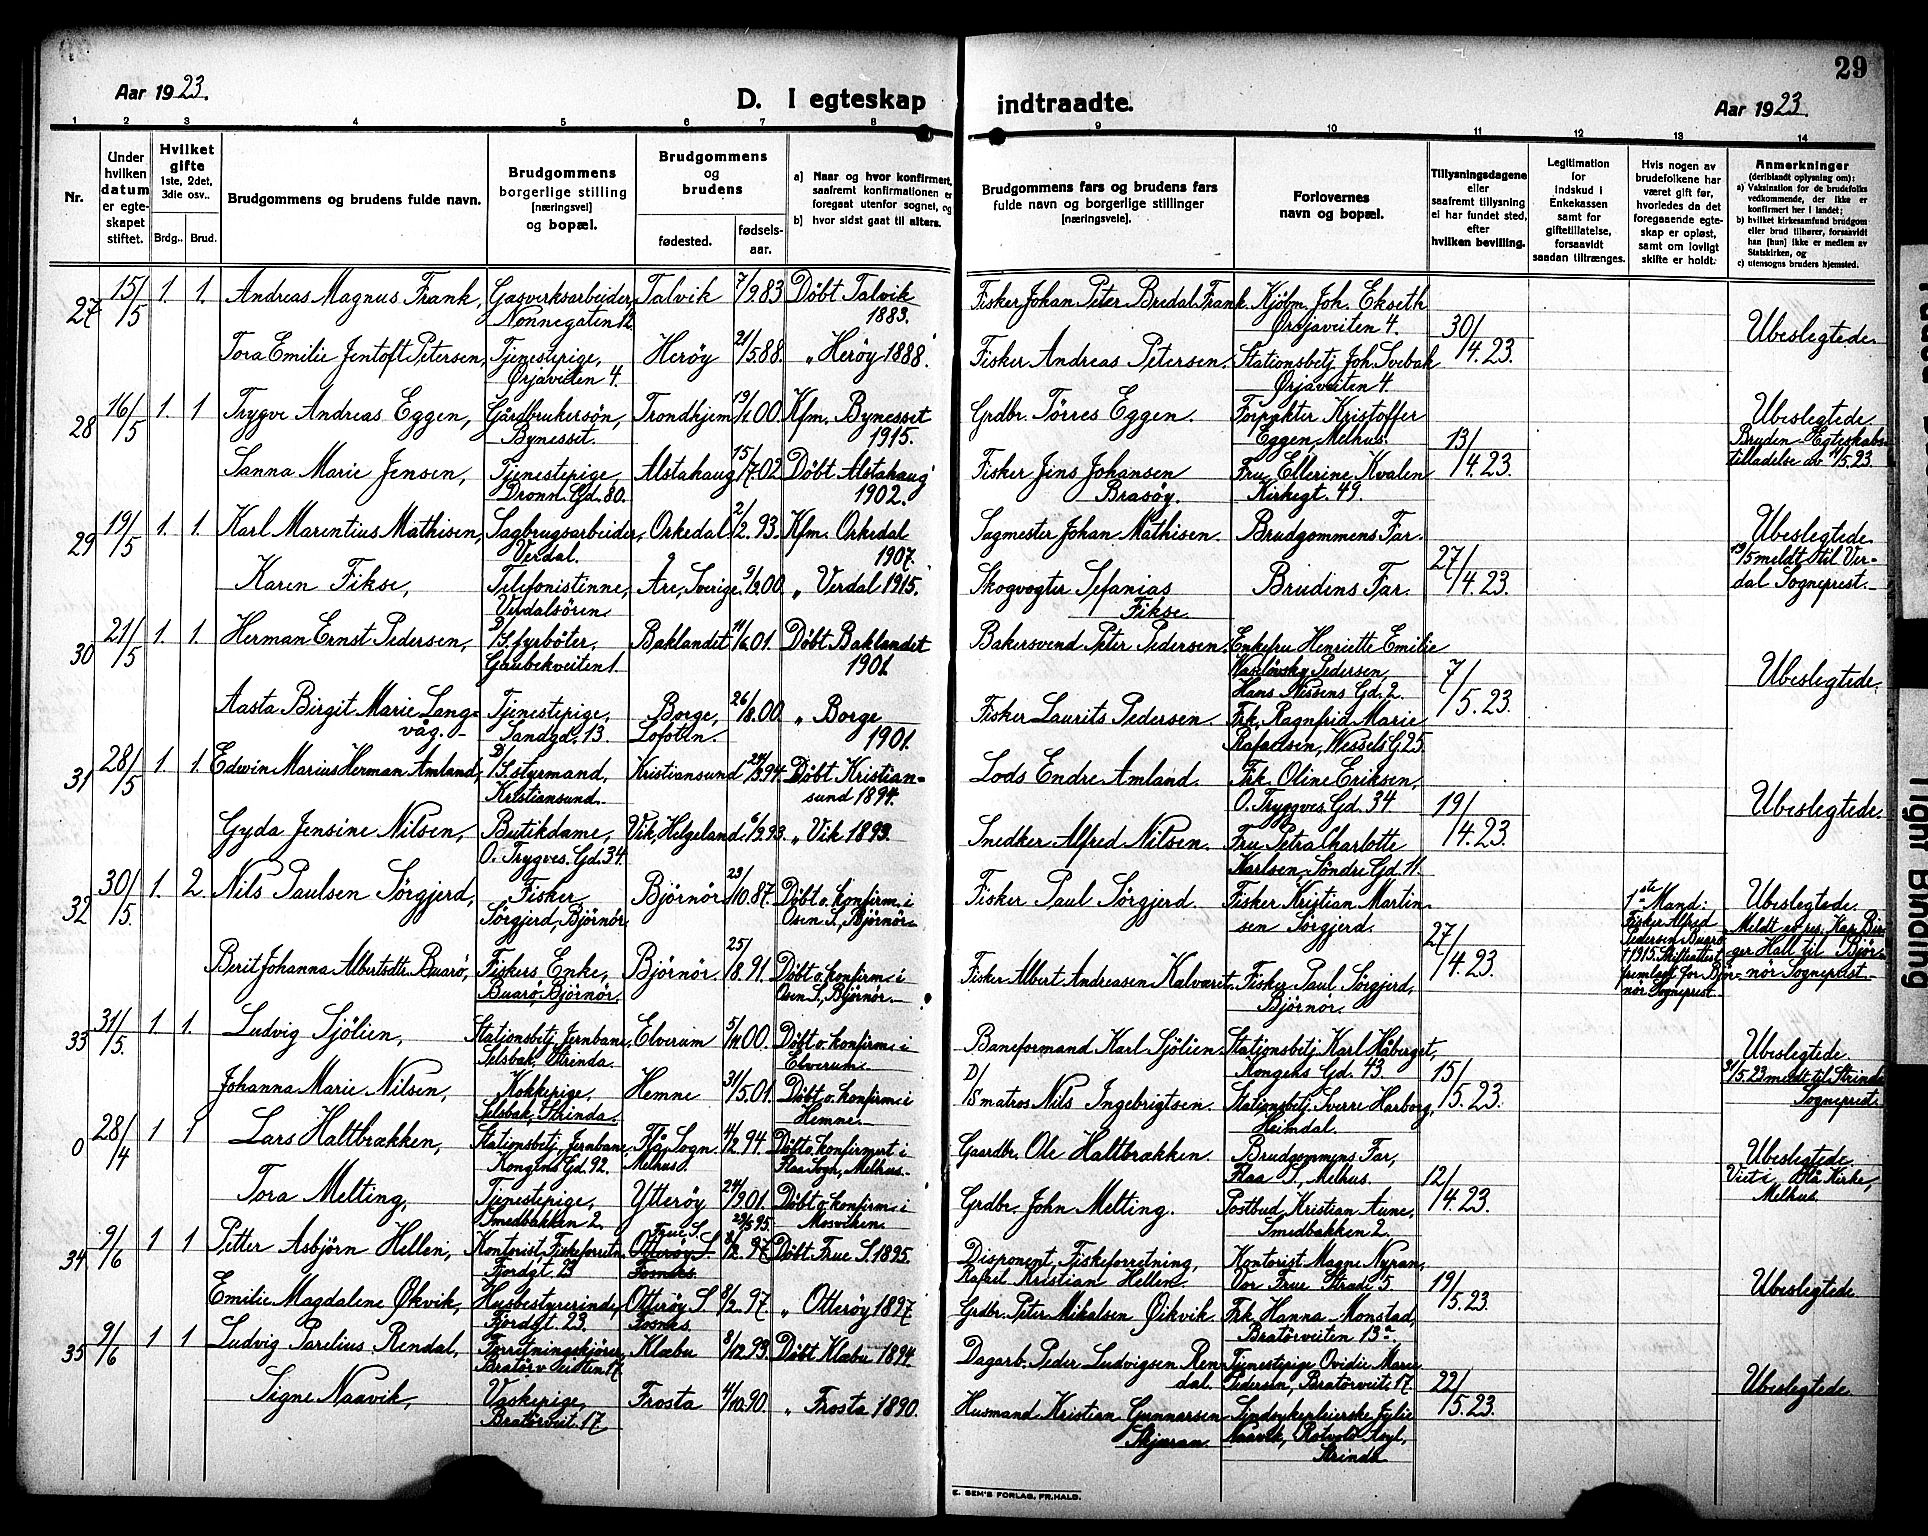 29
Aar 1923.
D. I egteskap indtraadte.
Aar 1923.
1 2 3 4 5 6 7 8 9 10 11 12 13 14
Nr.
Under hvilken datum er egteskapet stiftet.
Hvilket gifte 1ste, 2det, 3die osv..
Brdg.. Brud.
Brudgommens og brudens fulde navn.
Brudgommens borgerlige stilling [næringsvei] og bopæl.
Brudgommens og brudens
fødested.
fødsels-aar.
a) Naar og hvor konfirmert, saafremt konfirmationen er foregaat utenfor sognet, og
b) hvor sidst gaat til alters.
Brudgommens fars og brudens fars fulde navn og borgerlige stillinger [næringsveie].
Forlovernes navn og bopæl.
Tillysningsdagene eller saafremt tillysning ei har fundet sted, efter hvilken bevilling.
Legitimation for indskud i Enkekassen samt for giftetillatelse, forsaavidt saadan tiltrænges.
Hvis nogen av brudefolkene har været gift før, hvorledes da det foregaaende egteskap er opløst, samt om lovligt skifte er holdt.
Anmerkninger (deriblandt oplysning om):
a) Vaksination for de brudefolks vedkommende, der ikke er konfirmert her i landet;
b) hvilket kirkesamfund brudgom eller brud tilhører, forsaavidt han [hun] ikke er medlem av Statskirken, og
c) utensogns bruders hjemsted.
27 15/5 1. 1. Andreas Magnus Frank, Gasverksarbeider, Nonnegaten 12 Talvik 7/9.83 Døbt Talvik 1883. Fisker Johan Peter Bredal Frank Kjöbm. Joh. Ekseth Ørjaveiten 4. 30/4.23. Ubeslegtede.
Tora Emilie Jentoft Petersen, Tjenestepige, Ørjaveiten 4. Herøy 21/5.88. „ Herøy 1888. Fisker Andreas Petersen. Stationsbetj. Joh. Svebak Ørjaveiten 4.
28 16/5 1. 1 Trygve Andreas Eggen, Gårdbrukersøn, Bynesset. Trondhjem 19/1.00. Kfm. Bynesset 1915. Grdbr. Törres Eggen. Forpakter Kristoffer Eggen, Melhus. 13/4.23. Ubeslegtede. Bruden Egteskabstilladelse av 14/5.23.
Sanna Marie Jensen, Tjenestepige, Dronn. Gd. 80. Alstahaug 15/7.02 Døbt Alstahaug 1902. Fisker Jens Johansen Brasøy. Fru Ellerine Kvalen Kirkegt. 49.
29 19/5 1. 1. Karl Marentius Mathisen, Sagbrugsarbeider, Verdal. Orkedal 2/2.93. Kfm. Orkedal 1907. Sagmester Johan Mathisen. Brudgommens Far. 27/4.23. Ubeslegtede. 19/5 meldt til Verdal Sogneprest.
Karen Fikse, Telefonistinne, Verdalsören Åre, Sverige. 9/9.00. „ Verdal 1915. Skogvogter Sefanias Fikse. Brudens Far.
30 21/5 1. 1. Herman Ernst Pedersen, D/S. fyrböter, Gaubekveiten 1. Baklandet 11/6.01. Døbt Baklandet 1901 Bakersvend Peter Pedersen. Enkefru Henriette Emilie Pedersen, Hans Nissens Gd. 2. 7/5.23. Ubeslegtede.
Aasta Birgit Marie Langvåg. Tjenestepige, Sandgd. 13. Borge, Lofoten. 26/8.00. „ Borge 1901. Fisker Laurits Pedersen. Frk. Ragnfrid Marie Rafaelsen, Wessels G. 25.
31 28/5 1. 1. Edwin Marius Herman Amland, D/S. styrmand, Kristiansund. Kristiansund 29/3.94. Døbt Kristiansund 1894. Lods Endre Amland. Frk. Oline Eriksen, O. Tryggves. Gd. 34 19/4.23. Ubeslegtede.
Gyda Jensine Nilsen, Butikdame, O. Trygves. Gd. 34. Vik, Helgeland. 6/9.93. „ Vik 1893. Snedker Alfred Nilsen. Fru Petra Charlotte Karlsen, Söndre Gd. 11.
32 30/5. 1. 2. Nils Paulsen Sörgjerd, Fisker Sörgjerd, Björnör. Björnör 23/10.87. Döbt o. konfirm. i Osen S., Björnör. Fisker Paul Sörgjerd. Fisker Kristian Martinsen Sörgjerd. 27/4.23. 1ste Mand: Fisker Alfred Pedersen Buarö † 1915. Skifteattest fremlagt for Björnör Sogneprest. Ubeslegtede. Meldt av res. Kap. Birger Hall til Björnör Sogneprest.
Berit Johanna Albertsdtr. Buarö, Fiskers Enke, Buarö Björnör. Björnör. 25/8.91. Döbt o. konfirm. i Osen S., Björnör. Fisker Albert Andreasen Kalvareit. Fisker Paul Sörgjerd, Björnör.
33 31/5. 1. 1. Ludvig Sjölien, Stationsbetj. Jernbane, Selsbak, Strinda. Elverum 5/4.00. Döbt o. konfirm. i Elverum. Baneformand Karl Sjölien. Stationsbetj. Karl Håberget, Kongens Gd. 43. 15/5.23. Ubeslegtede. 31/5.23 meldt til Strinda Sogneprest.
Johanna Marie Nilsen, Kokkepige, Selsbak, Strinda. Hemne 31/5.01. Döbt o. konfirm. i Hemne. D/S matros Nils Ingebrigtsen. Stationsbetj. Sverre Harborg, Heimdal.
0 28/4 1 1 Lars Haltbrækken, Stationsbetj. Jernbane, Kongens Gd. 92. Flå Sogn Melhus. 4/2.94. Döbt o. konfirmert i Flaa Sogn, Melhus. Gaardbr. Ole Haltbrækken. Brudgommens Far, Flaa S., Melhus. 12/4.23. Ubeslegtede. Viet i Flå Kirke, Melhus.
Tora Melting, Tjenestepige, Smedbakken 2. Ytterøy 24/9.01. Döbt o. konfirm. i Mosviken. Grdbr. John Melting. Postbud Kristian Aune, Smedbakken 2.
34 9/6 1 1 Petter Asbjörn Hellen, Kontorist, Fiskeforretn. Fjordgt. 23 Frue S. Otterøy S. Fosnes 29/5.95. 8/2.97 Døbt Frue S. 1895. Disponent, Fiskeforretning, Rafael Kristian Hellen. Kontorist Magne Nyran, Vor Frue Stræde 5. 19/5.23. Ubeslegtede
Emilie Magdalene Økvik, Husbestyrerinde, Fjordgt. 23. Otterøy S. Fosnes 8/2.97. „ Otterøy 1897 Grdbr. Peter Mikalsen Öikvik. Frk. Hanna Monstad, Bratörveiten 13a.
35 9/6 1 1 Ludvig Parelius Rendal, Forretningskjörer, Bratörveiten 17. Klæbu 8/12.93. Døbt Klæbu 1894. Dagarb. Peder Ludvigsen Rendal. Tjenestepige Ovidie Marie Pedersen, Bratörveite 17. 22/5.23. Ubeslegtede
Signe Naavik, Vaskepige, Bratörveit. 17. Frosta 4/10.90. „ Frosta 1890. Husmand Kristian Gunnarsen Skjæran. Sindsykepleierske Jylie Naavik, Rotvold Asyl, Strinda
E. SEM'S FORLAG, FR.HALD.
Tight Binding